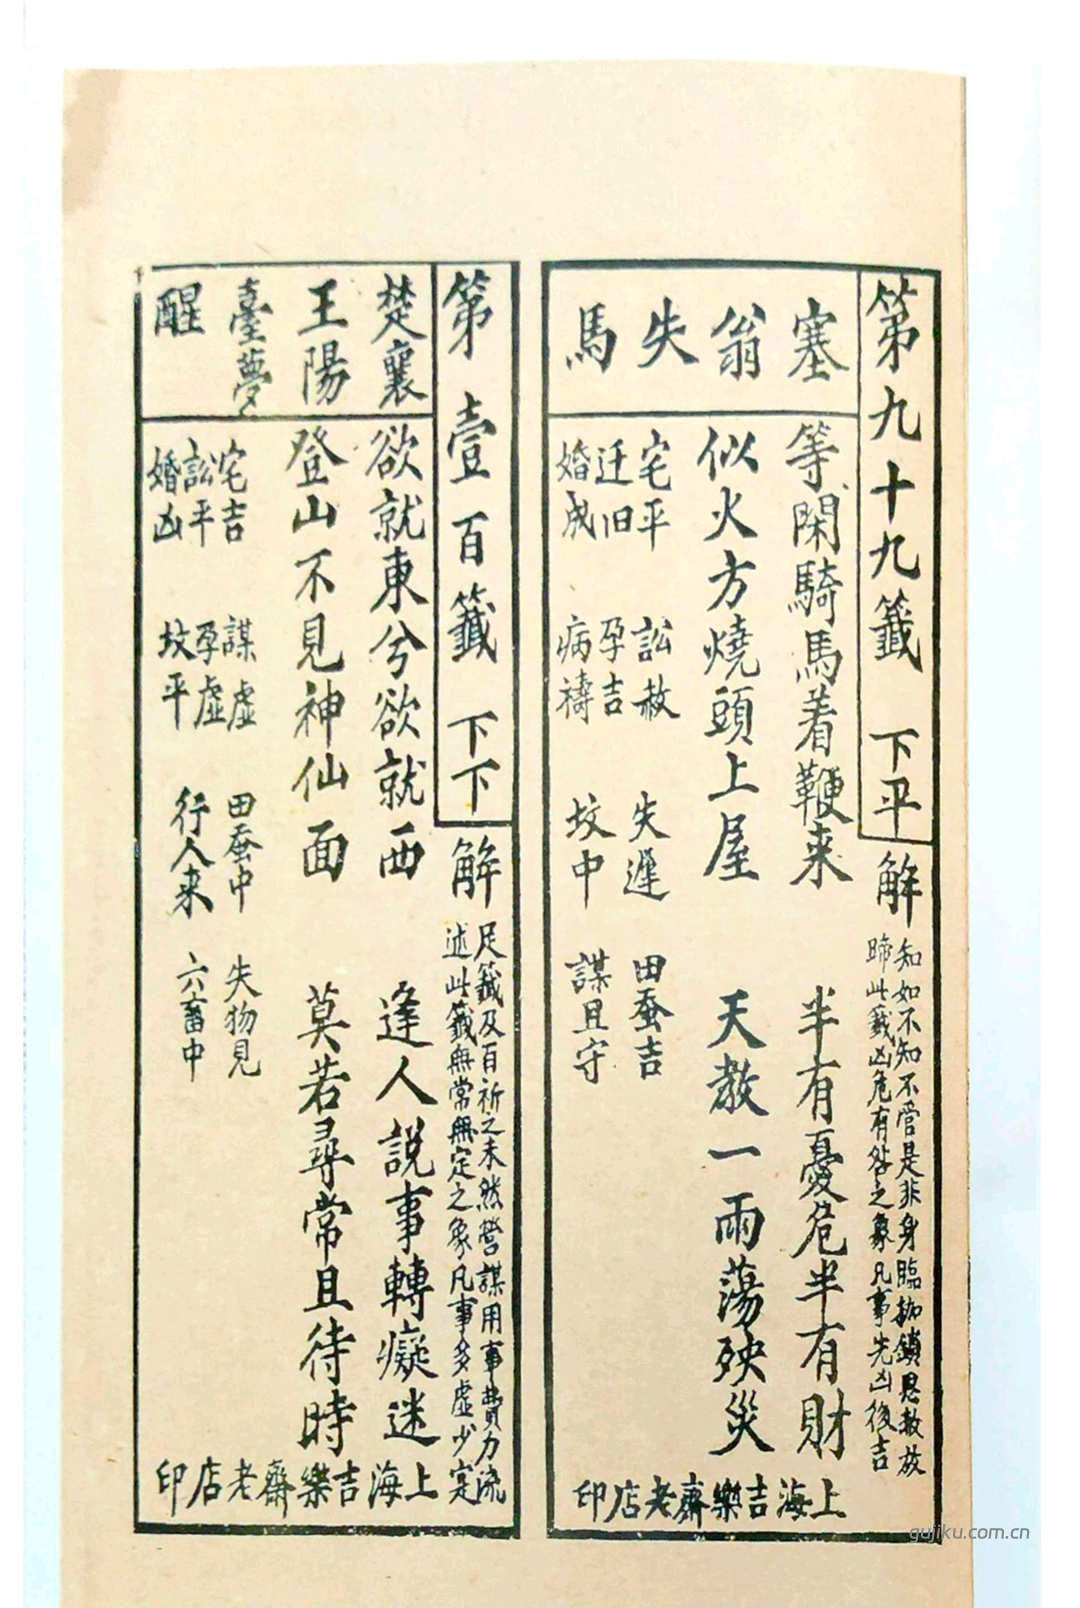 第九十九籤 下平
解
知如不知不管是非身臨枷鎖恩赦放
啼此籤凶危有咎之象凡事先凶後吉
塞
翁
失
馬
等閑騎馬着鞭来
半有憂危半有財
似火方燒頭上屋
天教一雨蕩殃災
宅平
迁旧
婚成
訟赦
孕吉
病禱
失遲
坟中
田蚕吉
謀且守
上海吉樂齋老店印
第壹百籤 下下
解
足籤及百祈之未然營謀用事費力流
述此籤無常無定之象凡事多虛少寔
楚襄
王陽
臺夢
醒
欲就東兮欲就西
逢人説事轉癡迷
登山不見神仙面
莫若尋常且待時
宅吉
訟平
婚凶
謀虛
孕虛
坟平
田蚕中
行人来
失物見
六畜中
上海吉樂齋老店印
gujiku.com.cn